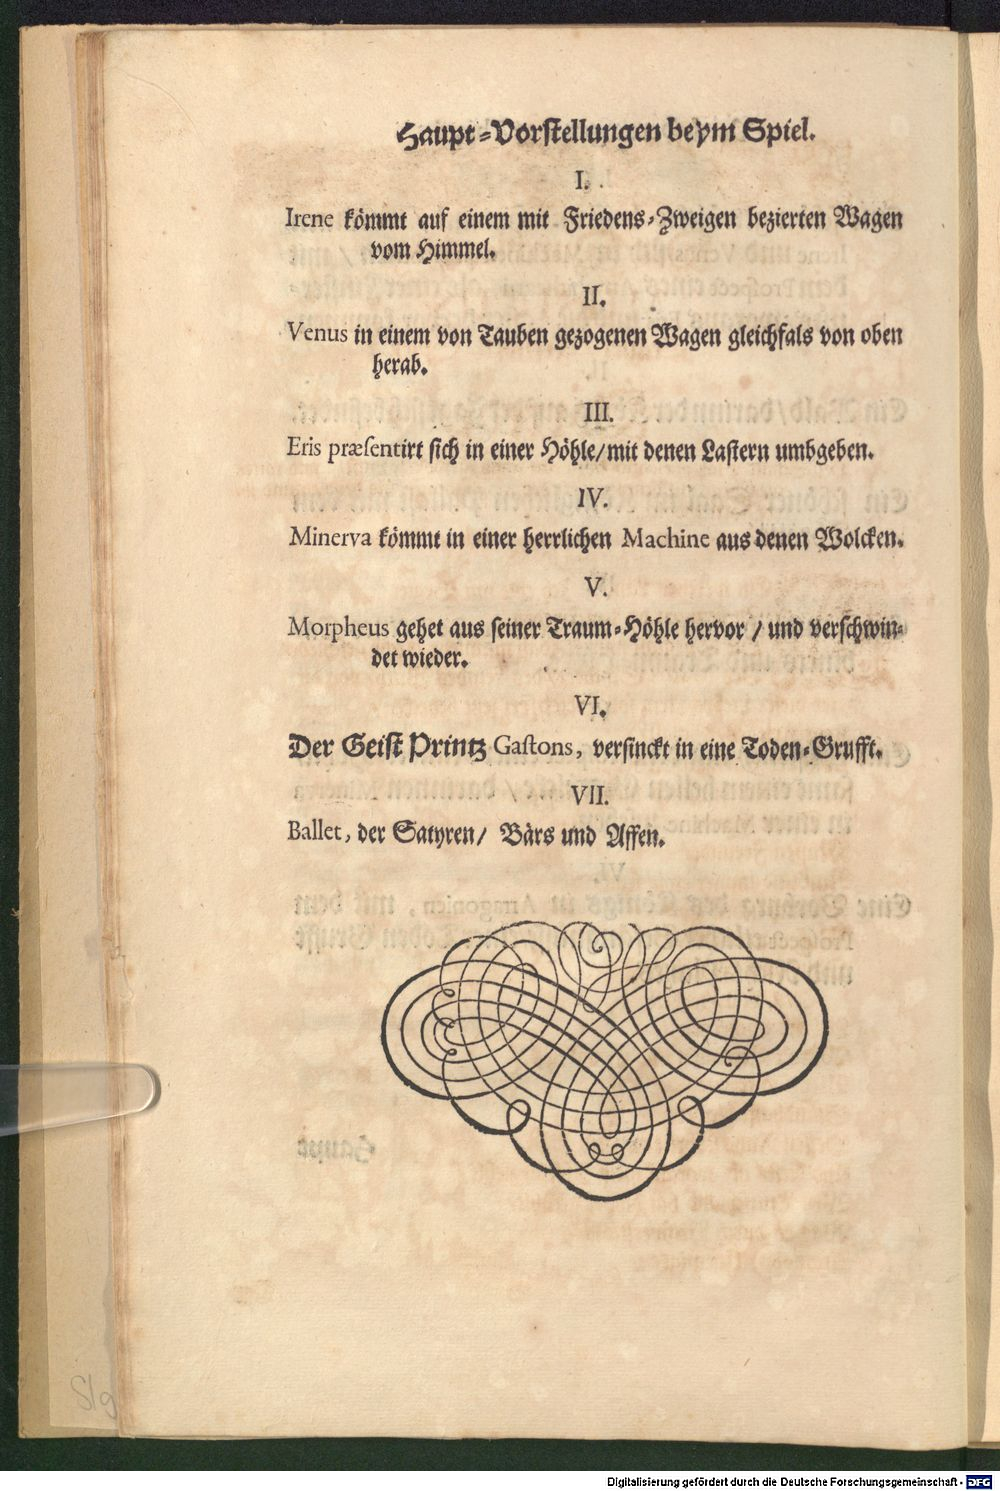 Haupt-Vorstellungen beym Spiel.
I.
Irene kömmt auf einem mit Friedens-Zweigen bezierten Wagen
vom Himmel.
II.
Venus in einem von Tauben gezogenen Wagen gleichfals von oben
herab.
III.
Eris præsentirt sich in einer Höhle/mit denen Lastern umbgeben.
IV.
Minerva kömmt in einer herrlichen Machine aus denen Wolcken.
V.
Morpheus gehet aus seiner Traum-Höhle hervor / und verschwin-
det wieder.
VI.
Der Geist Printz Gastons, versinckt in eine Toden-Grufft.
VII.
Ballet, der Satyren/ Bärs und Affen.
Digitalisierung gefördert durch die Deutsche Forschungsgemeinschaft - DFG